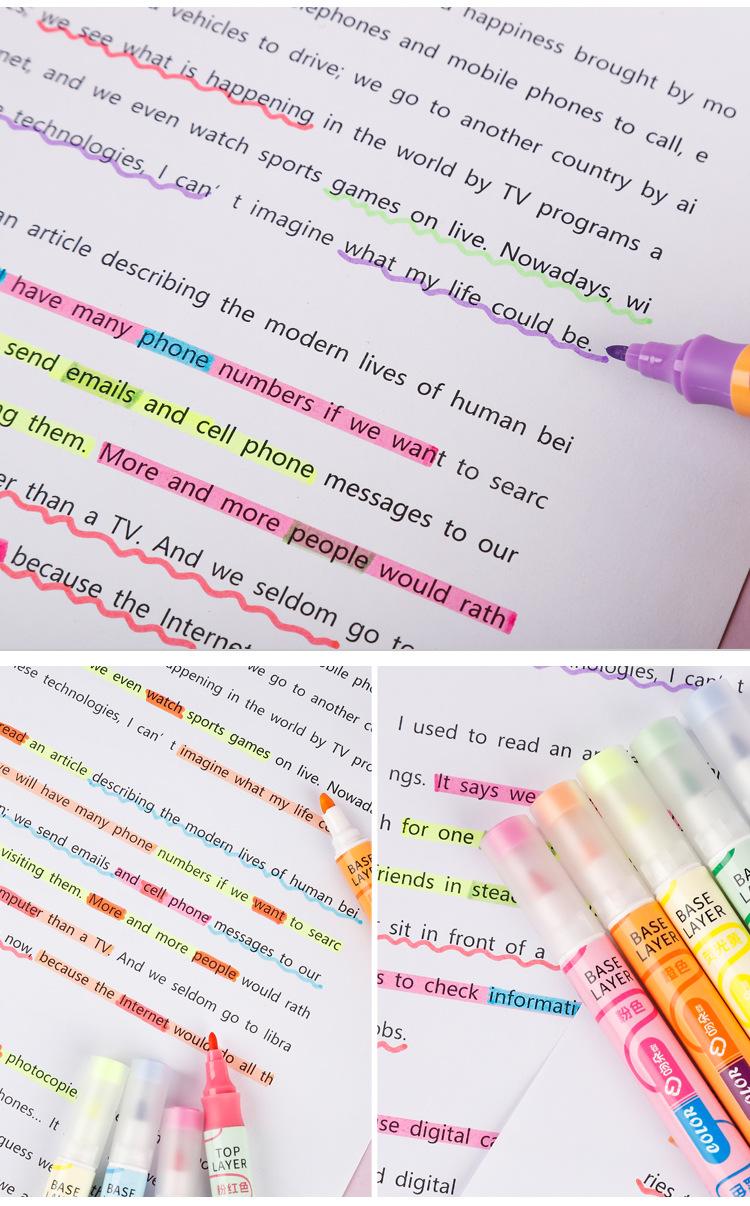 happiness brought by mo
vehicles to drive; we go to another country by ai
phones and mobile phones to call, e
we see what is happening in the world by TV programs a
net, and we even watch sports games on live. Nowadays, wi
technologies, I can' t imagine what my life could be.
an article describing the modern lives of human bei
have many phone numbers if we want to searc
send emails and cell phone messages to our
ng them. More and more people would rath
er than a TV. And we seldom go to
because the Internet
we go to another c
appening in the world by TV pro
we even watch sports games on live. Nowad
ese technologies, I can' t imagine what my life c
read an article describing the modern lives of human bei
we will have many phone numbers if we want to searc
we send emails and cell phone messages to our
visiting them. More and more people would rath
mputer than a TV. And we seldom go to libra
now, because the Internet would do all th
photocopie
hones... It
guess we
we a
BASE
LAYER
BASE
BASE
TOP
LAYER
粉红色
nologies, I can' t
I used to read an ar
ngs. It says we
h for one
riends in stea
sit in front of a
s to check informati
obs.
se digital ca
d digital
ries
BASE
LAYER
粉色
COLOR
BASE
LAYER
橙色
BASE
LAYER
荧光黄